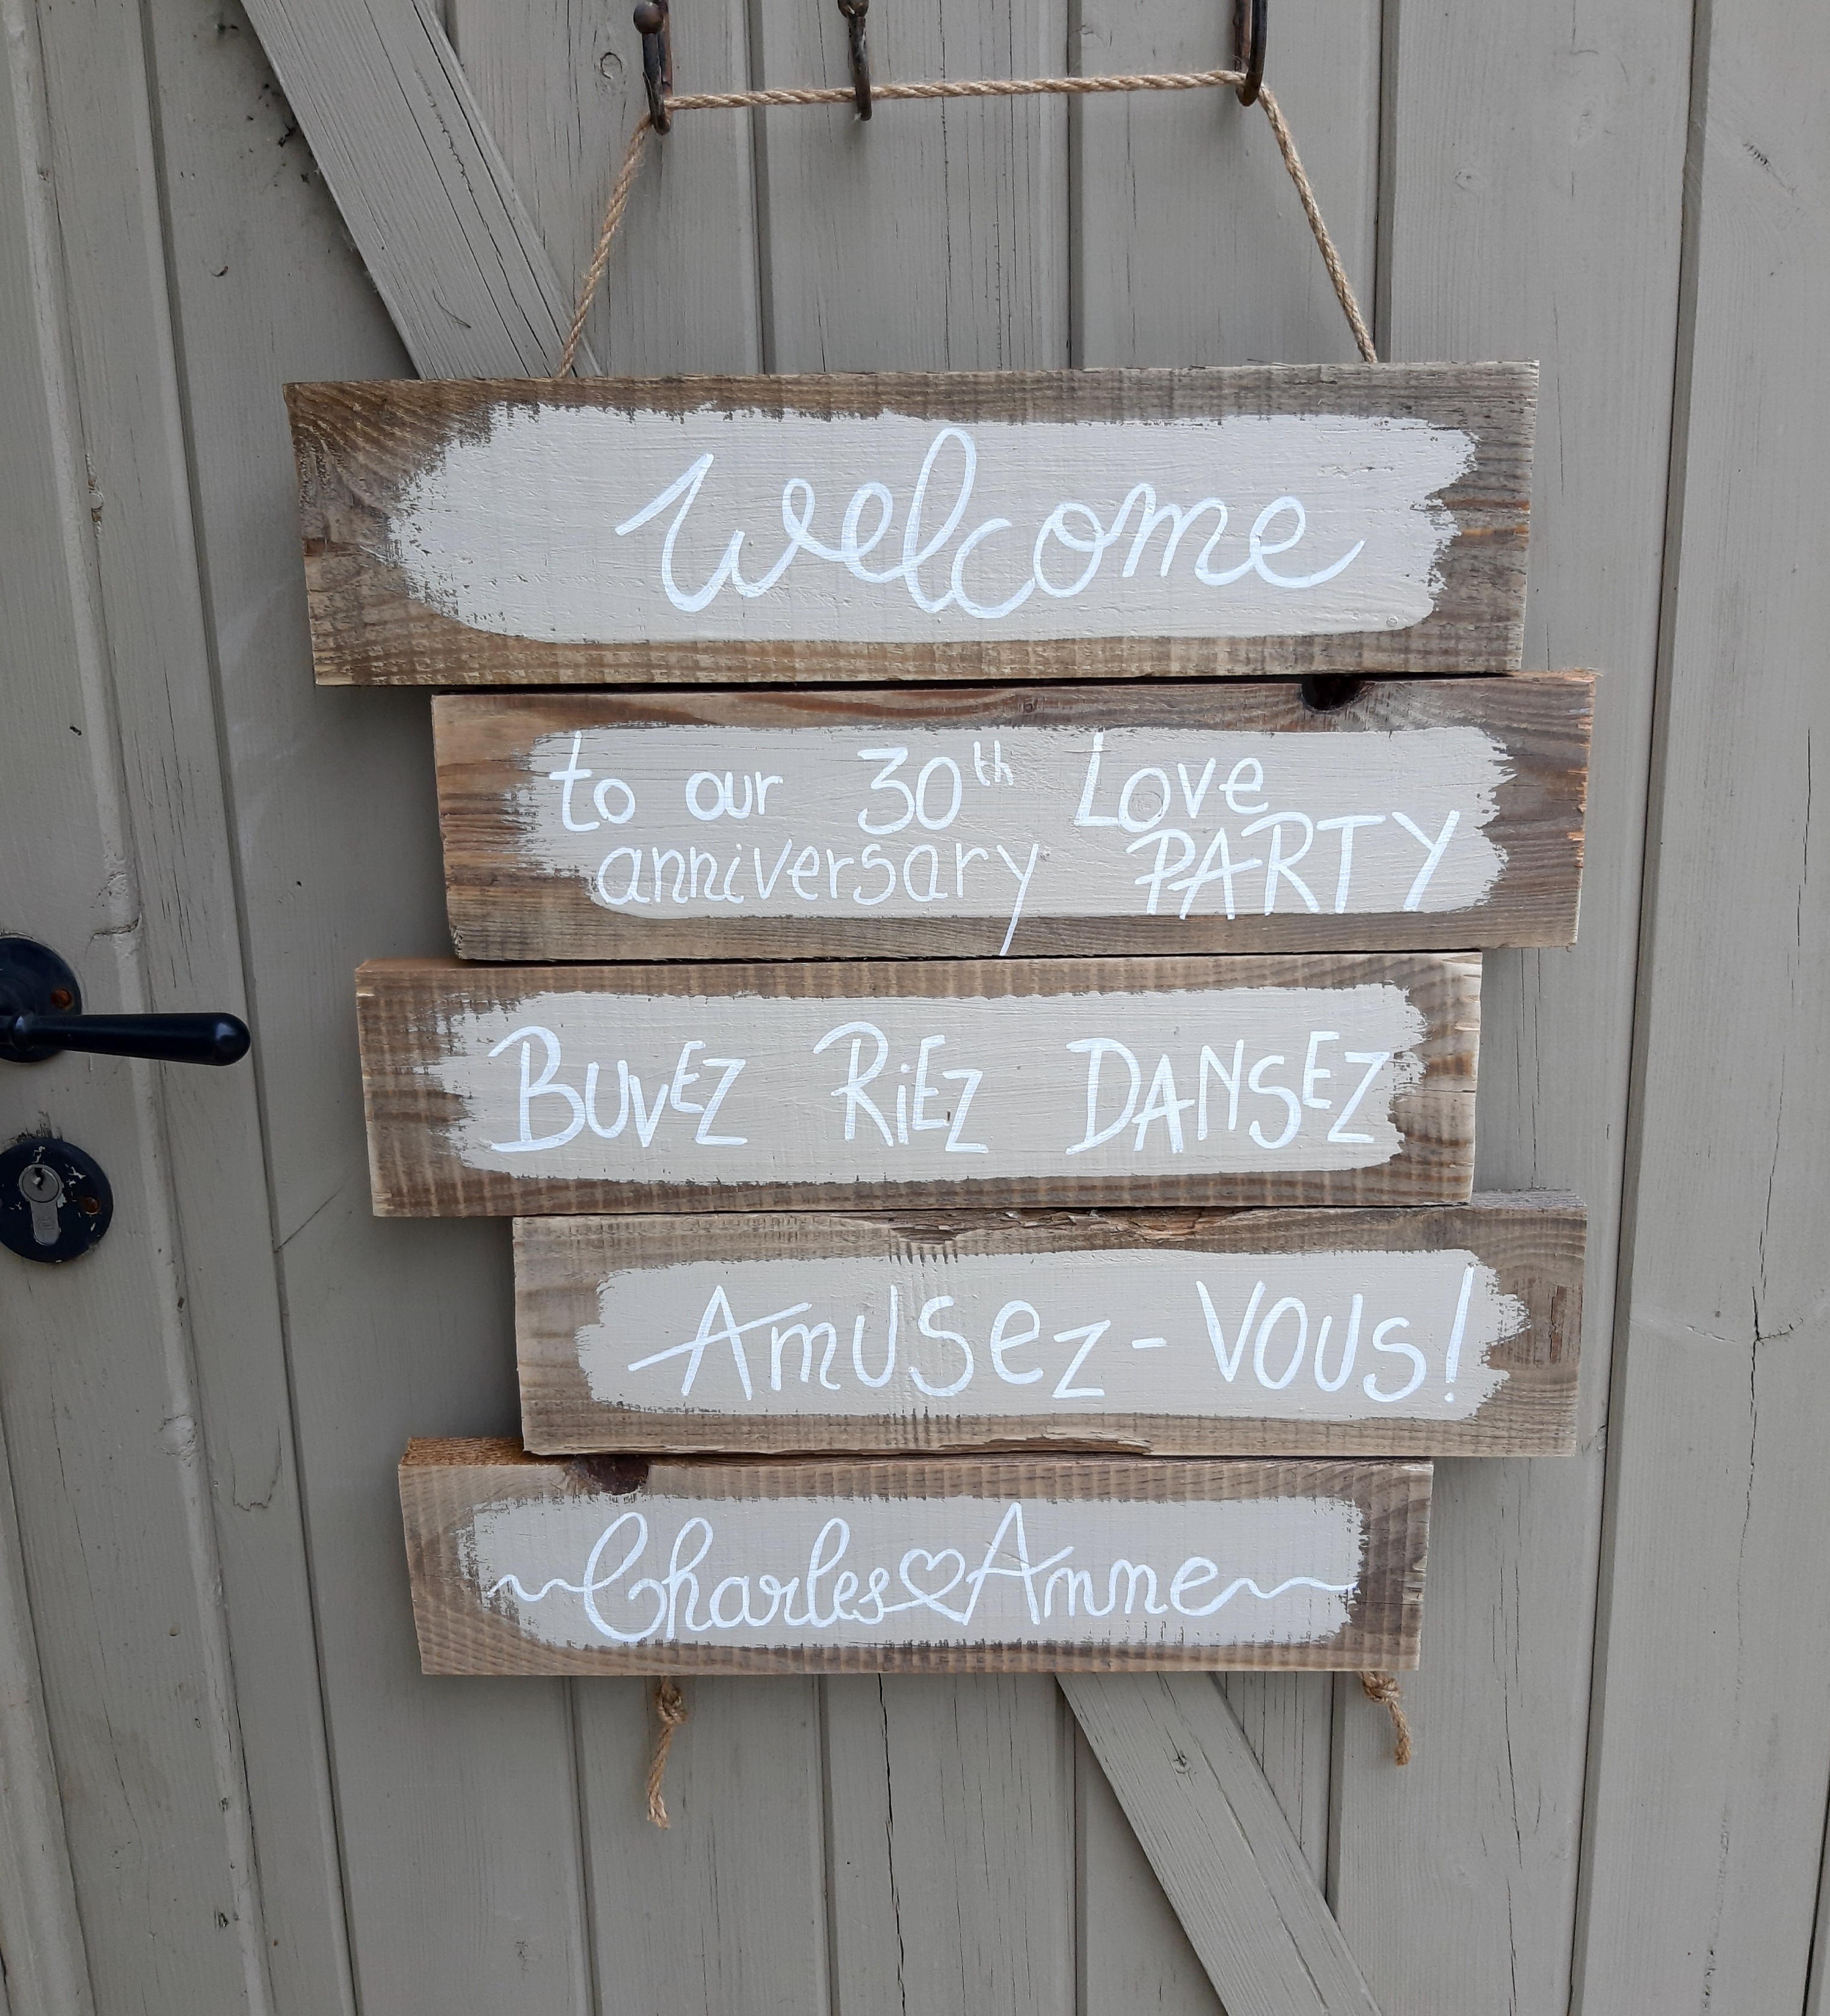 welcome
to our 30th Love
anniversary PARTY
BUVEZ RiEZ DANSEZ
AmUSez-VOUs!
Charles♡Anne